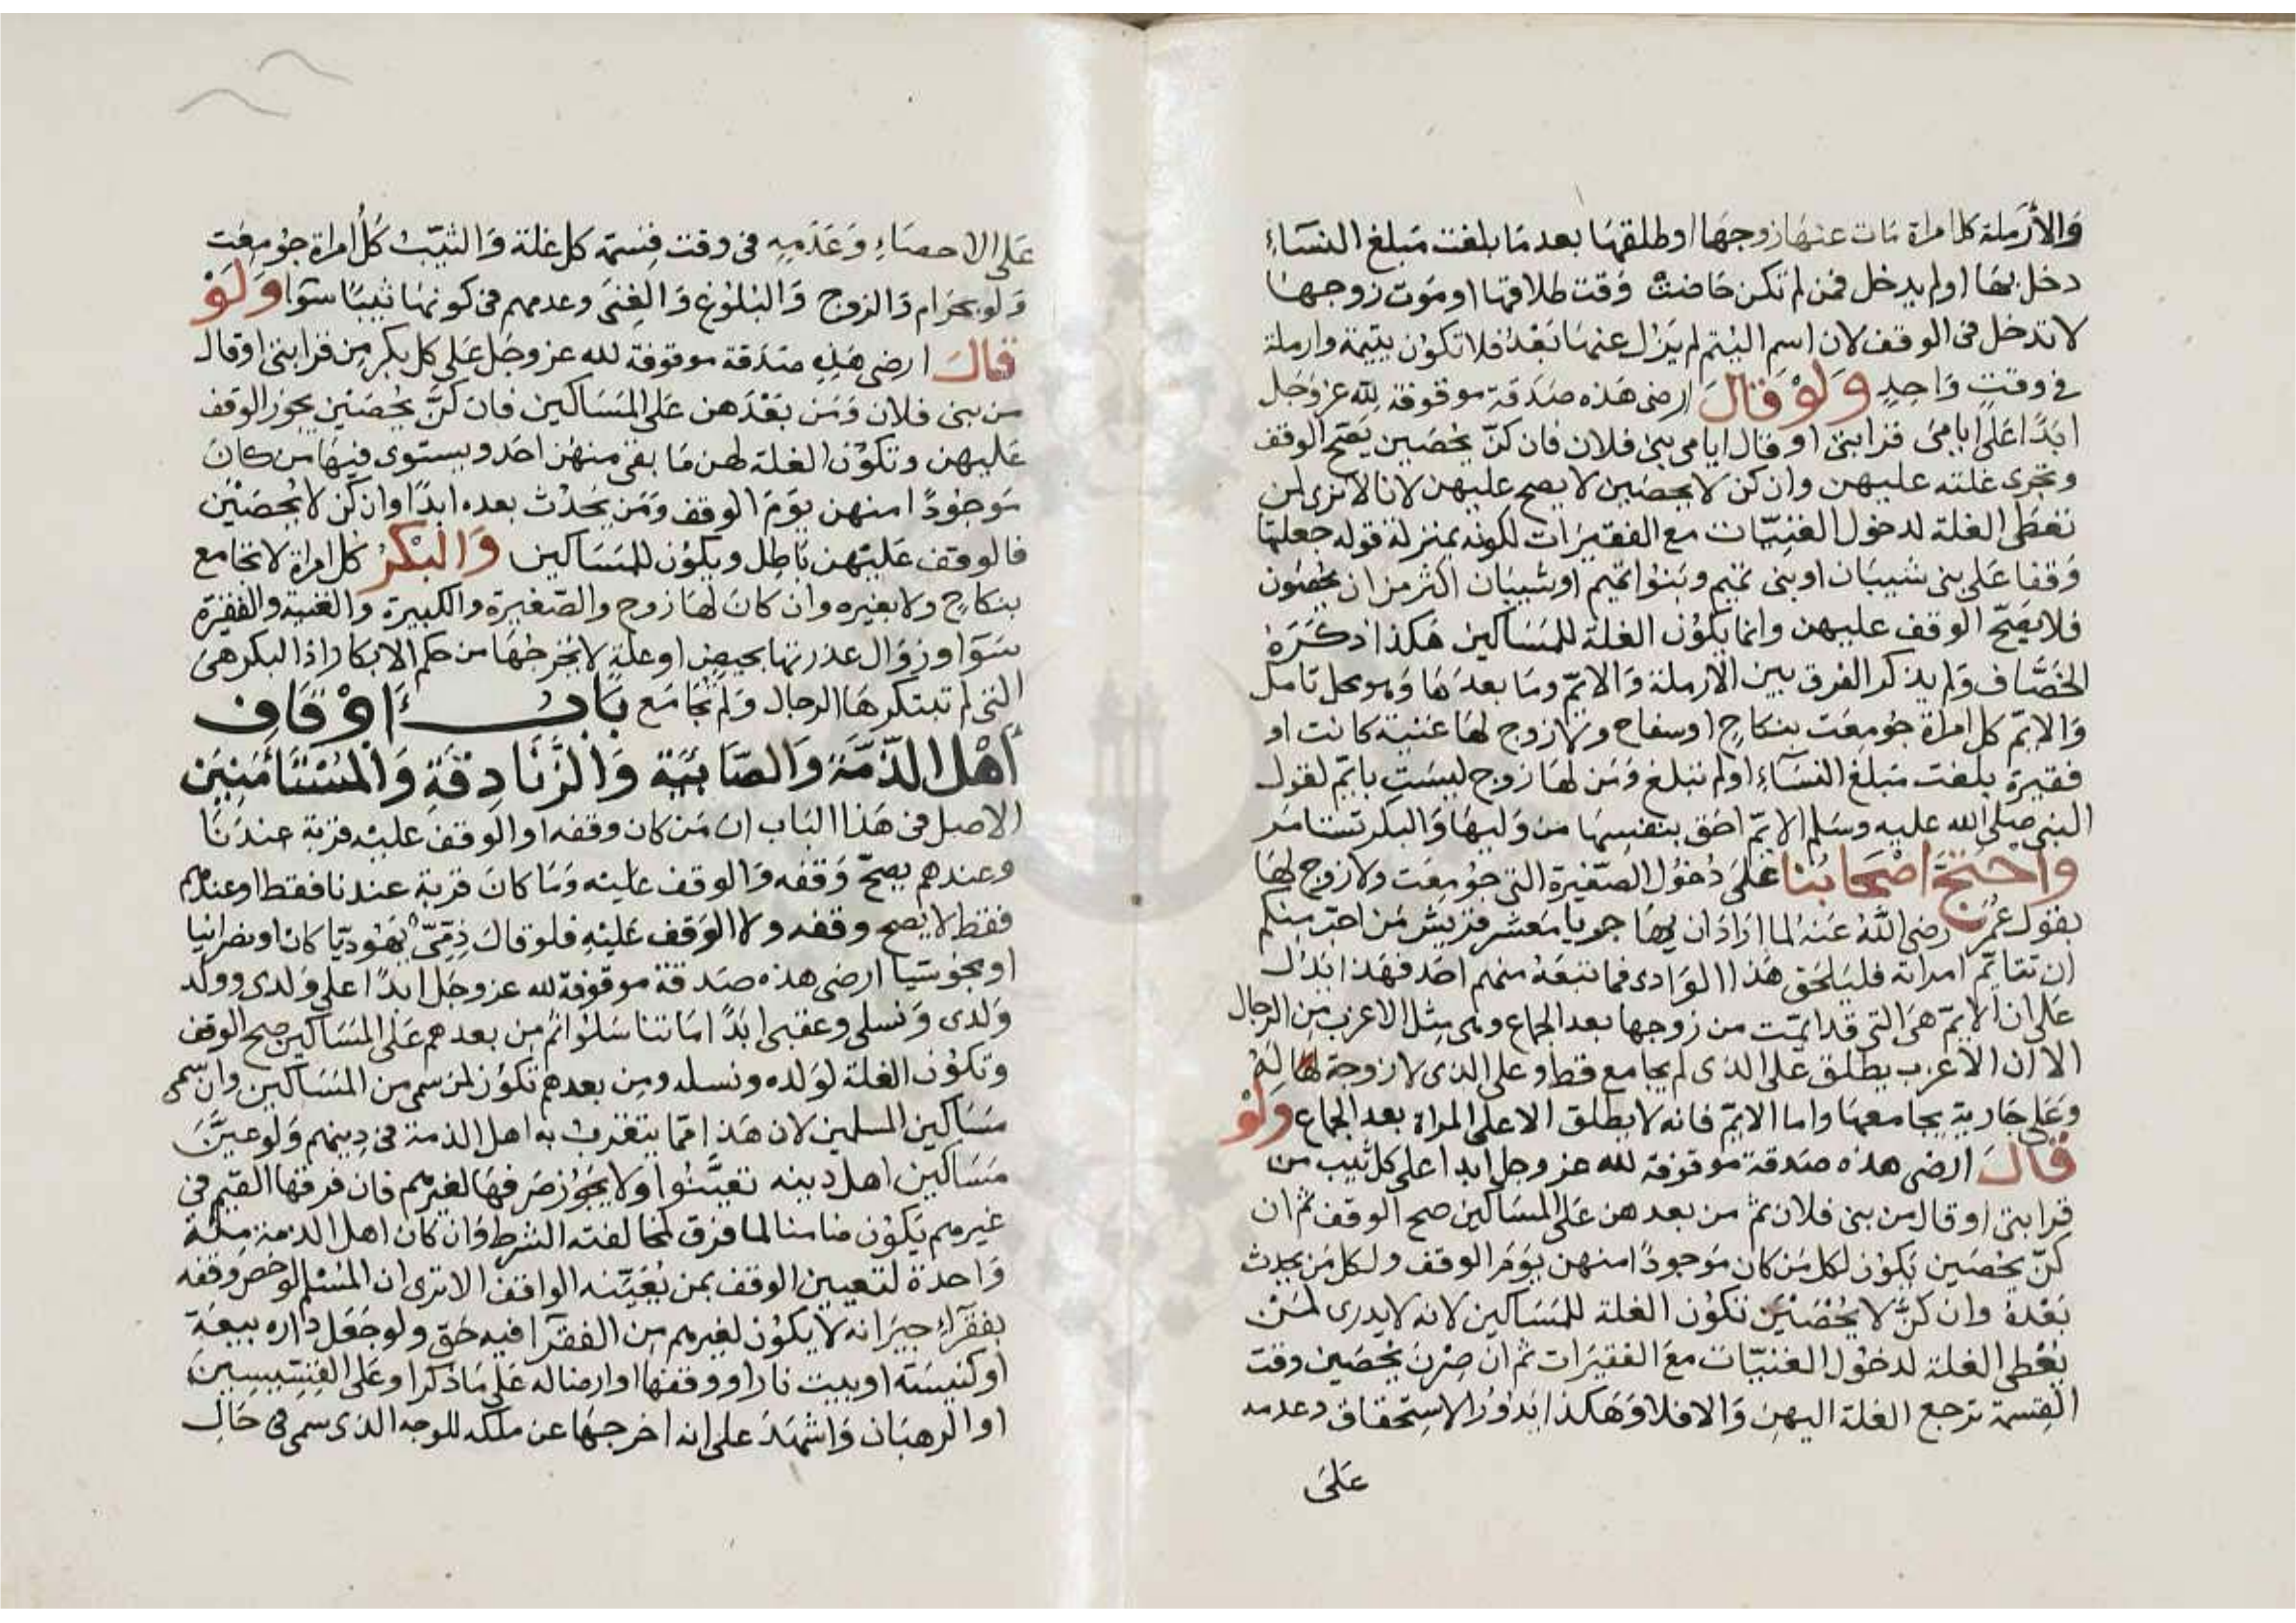 وَالأَرْمِلة كل امراة مَات عنهَا زوجهَا او طلقهَا بعد مَا بلغت مَبلغ النسَاءِ
دخل بهَا اولم يدخل فمن لم تكن حَاضت وَقت طلاقهَا او مَوت زوجهَا
لا تدخل في الوقف لان اسم اليُتم لم يزل عنهَا بَعْدُ فلا تكوُن يتيمة وارملة
في وقتٍ وَاحِدٍ وَلَوْ قَالَ ارضى هَذه صَدَقة موقوفة لِلّه عز وَجَل
ابَدًا عَلى ايَامىَ قرَابتى او قال ايامى بنى فلان فان كنّ يُحْصَين يَصِح الوقف
وتجرى غلته عليهن وان كن لا يحصَين لا يصح عليهن لانا لا نرى لمن
نعطى الغلة لدخول الغنِيّات مع الفقيرَات لكونه بمنزلة قوله جعلتهَا
وَقفا عَلى بنى شيبَان او بنى تميم وبَنوُا تميم او شيبَان اكثر من ان يحْصَون
فلا يَصِحّ الوقف عليهن وانما يكوُن الغلة للمَسَاكين هَكذا ذكَرَهُ
الخصَّاف وَلم يذكر الفرق بين الارملة وَالايّم وَمَا بعدَهَا وَهو محل تامل
وَالايّم كل امراة جُومِعَت بنكاحٍ او سفاح ولا زوج لهَا غنية كانت او
فقيرة بلغت مَبلغ النسَاءِ اولم تبلغ وَمَن لهَا زوج ليسَت بايّم لقول
النبى صلى الله عليه وسَلم الايّم احَق بنفسِهَا من وَليهَا وَالبكر تستامر
وَاحتجَّ اصْحَابُنا عَلىَ دُخوُل الصَّغيرة التى جُومِعَت ولا زوج لهَا
بقول عُمَر رضى اللهُ عَنهُ لما ارَادَ ان يهَاجر يا مَعشر قريش مَن احَبّ منكم
ان تتايّم امراته فليَلحَق هَذا الوَادى فما تبعَهُ منهم احَد فهَذا يَدُل
عَلى ان الايّم هىَ التى قد ايّمت من زوجها بعد الجماع وهى مِثل الاعزب مِن الرجال
الا ان الاعزب يطلق عَلى الذى لم يجامع قط وعلى الذى لا زوجة لَهُ
وَعَلى جَاريةٍ يجامعهَا واما الايّم فانه لا يطلق الا على المراة بعد الجماع وَلَوْ
قَالَ ارضى هذه صَدقة موقوفة لله عز وجل ابدا على كل ثيب من
قرابتى او قال من بنى فلان ثم من بعدهن عَلى المسَاكين صح الوقف ثم ان
كنّ يحْصَين يَكوُن لكل مَن كان مَوجودًا منهن يَوْمَ الوقف ولكل مَن يحدث
بَعْدهُ وان كنَّ لا يُحْصَيْنَ تكوُن الغلة للمَسَاكين لانه لا يدرى لمَنْ
يُعْطى الغلة لدخوُل الغنيّات مَعَ الفقيرَات ثم ان صِرْنَ يحْصَين وقت
القِسمة ترجع الغلة اليهن وَالا فلا وَهَكذا يَدُوْرُ الاستحقاق وعدمه
عَلىَ
عَلى الاحصَاءِ وَعَدَمِهِ فى وقت قِسمَة كل غلة وَالثيّبُ كُل امراة جُومِعَت
وَلو بحَرَام وَالزوج وَالبُلوُغ وَالغِنى وعدمهم فى كونهَا ثيبًا سَوَا وَلَوْ
قَالَ ارضى هَذِهِ صَدَقة موقوفة لله عز وجَل عَلى كل بكر مِن قرابتى او قال
من بنى فلان وَمَن بَعْدَهن عَلى المَسَاكين فان كنَّ يُحْصَيْن يجوز الوقف
عَليهن وتكوُن الغلة لهن مَا بقى منهُن احَد ويستوى فيهَا من كان
مَوجُودًا منهن يَوَمَ الوقف وَمَن يَحْدُث بعده ابدًا وان كن لا يُحْصَيْن
فالوقف عَليْهن بَاطِل ويكوُن للمَسَاكين وَالبْكرُ كل امراة لا تجامع
بنكاحٍ ولا بغيره وان كانَ لهَا زوج والصّغيرة والكبيرة والغنية والفقِرَة
سَوَا وزوَال عذرتها بحيض او علة لا يخرجهَا من حكم الابكار اذ البكر هىَ
التى لم تبتكرهَا الرجال وَلم تجَامَع بَابُ أوْقَافِ
أهْل الذّمَّة وَالصَّابئَةِ وَالزّنَادِقَةِ وَالْمُسْتَأمَنِين
الاصل فى هَذا البَاب ان مَن كان وقفه او الوقف عليْه قربة عندَنَا
وعندهم يصحّ وَقفه وَالوقف عَليْه وَمَا كانَ قربة عندنا فقط او عندهم
فقط لا يصح وقفه ولا الوَقف عَليْهِ فلو قالَ ذِمّىّ يهُوديّا كان او نصرانيا
او مجوُسيّا ارضى هذه صَدقة موقوفة لله عز وجَل ابدًا على وَلدى وولد
وَلدى وَنسلى وعقبى ابَدًا مَا تناسَلوُا ثم من بعدهم عَلى المَسَاكين صح الوقف
وتكوُن الغلة لوَلده ونسله ومن بعدهم تكوُن لمن سمى من المَسَاكين وان سمى
مَسَاكين المسلمين لان هَذا مما يتقربُ به اهل الذمة فى دِينهم وَلو عيَّنَ
مَسَاكين اهل دينه تعيَّنوُا وَلا يَجُوْز صَرفهَا لغيرهم فان فرقها القيّم فى
غيرهم يَكوُن ضامنا لما فرق لمخالفته الشرط وَان كان اهل الذمة مِلة
وَاحدة لتعيين الوقف بمن يُعَيّنه الواقف الا ترى ان المُسْلم لو خَص وقفه
بفقرَاءِ جيرَانه لا يكوُن لغيرهم من الفقرَا فيه حَق ولو جَعَل دَاره بيعَة
او كنيسَة او بيت نار او وقفهَا او ارضا له عَلى مَا ذكرا وعَلى القِسّيسِينَ
او الرهبَان وَاشهَدَ على انه اخرجهَا عن ملكه للوجه الذى سمى فى حَال